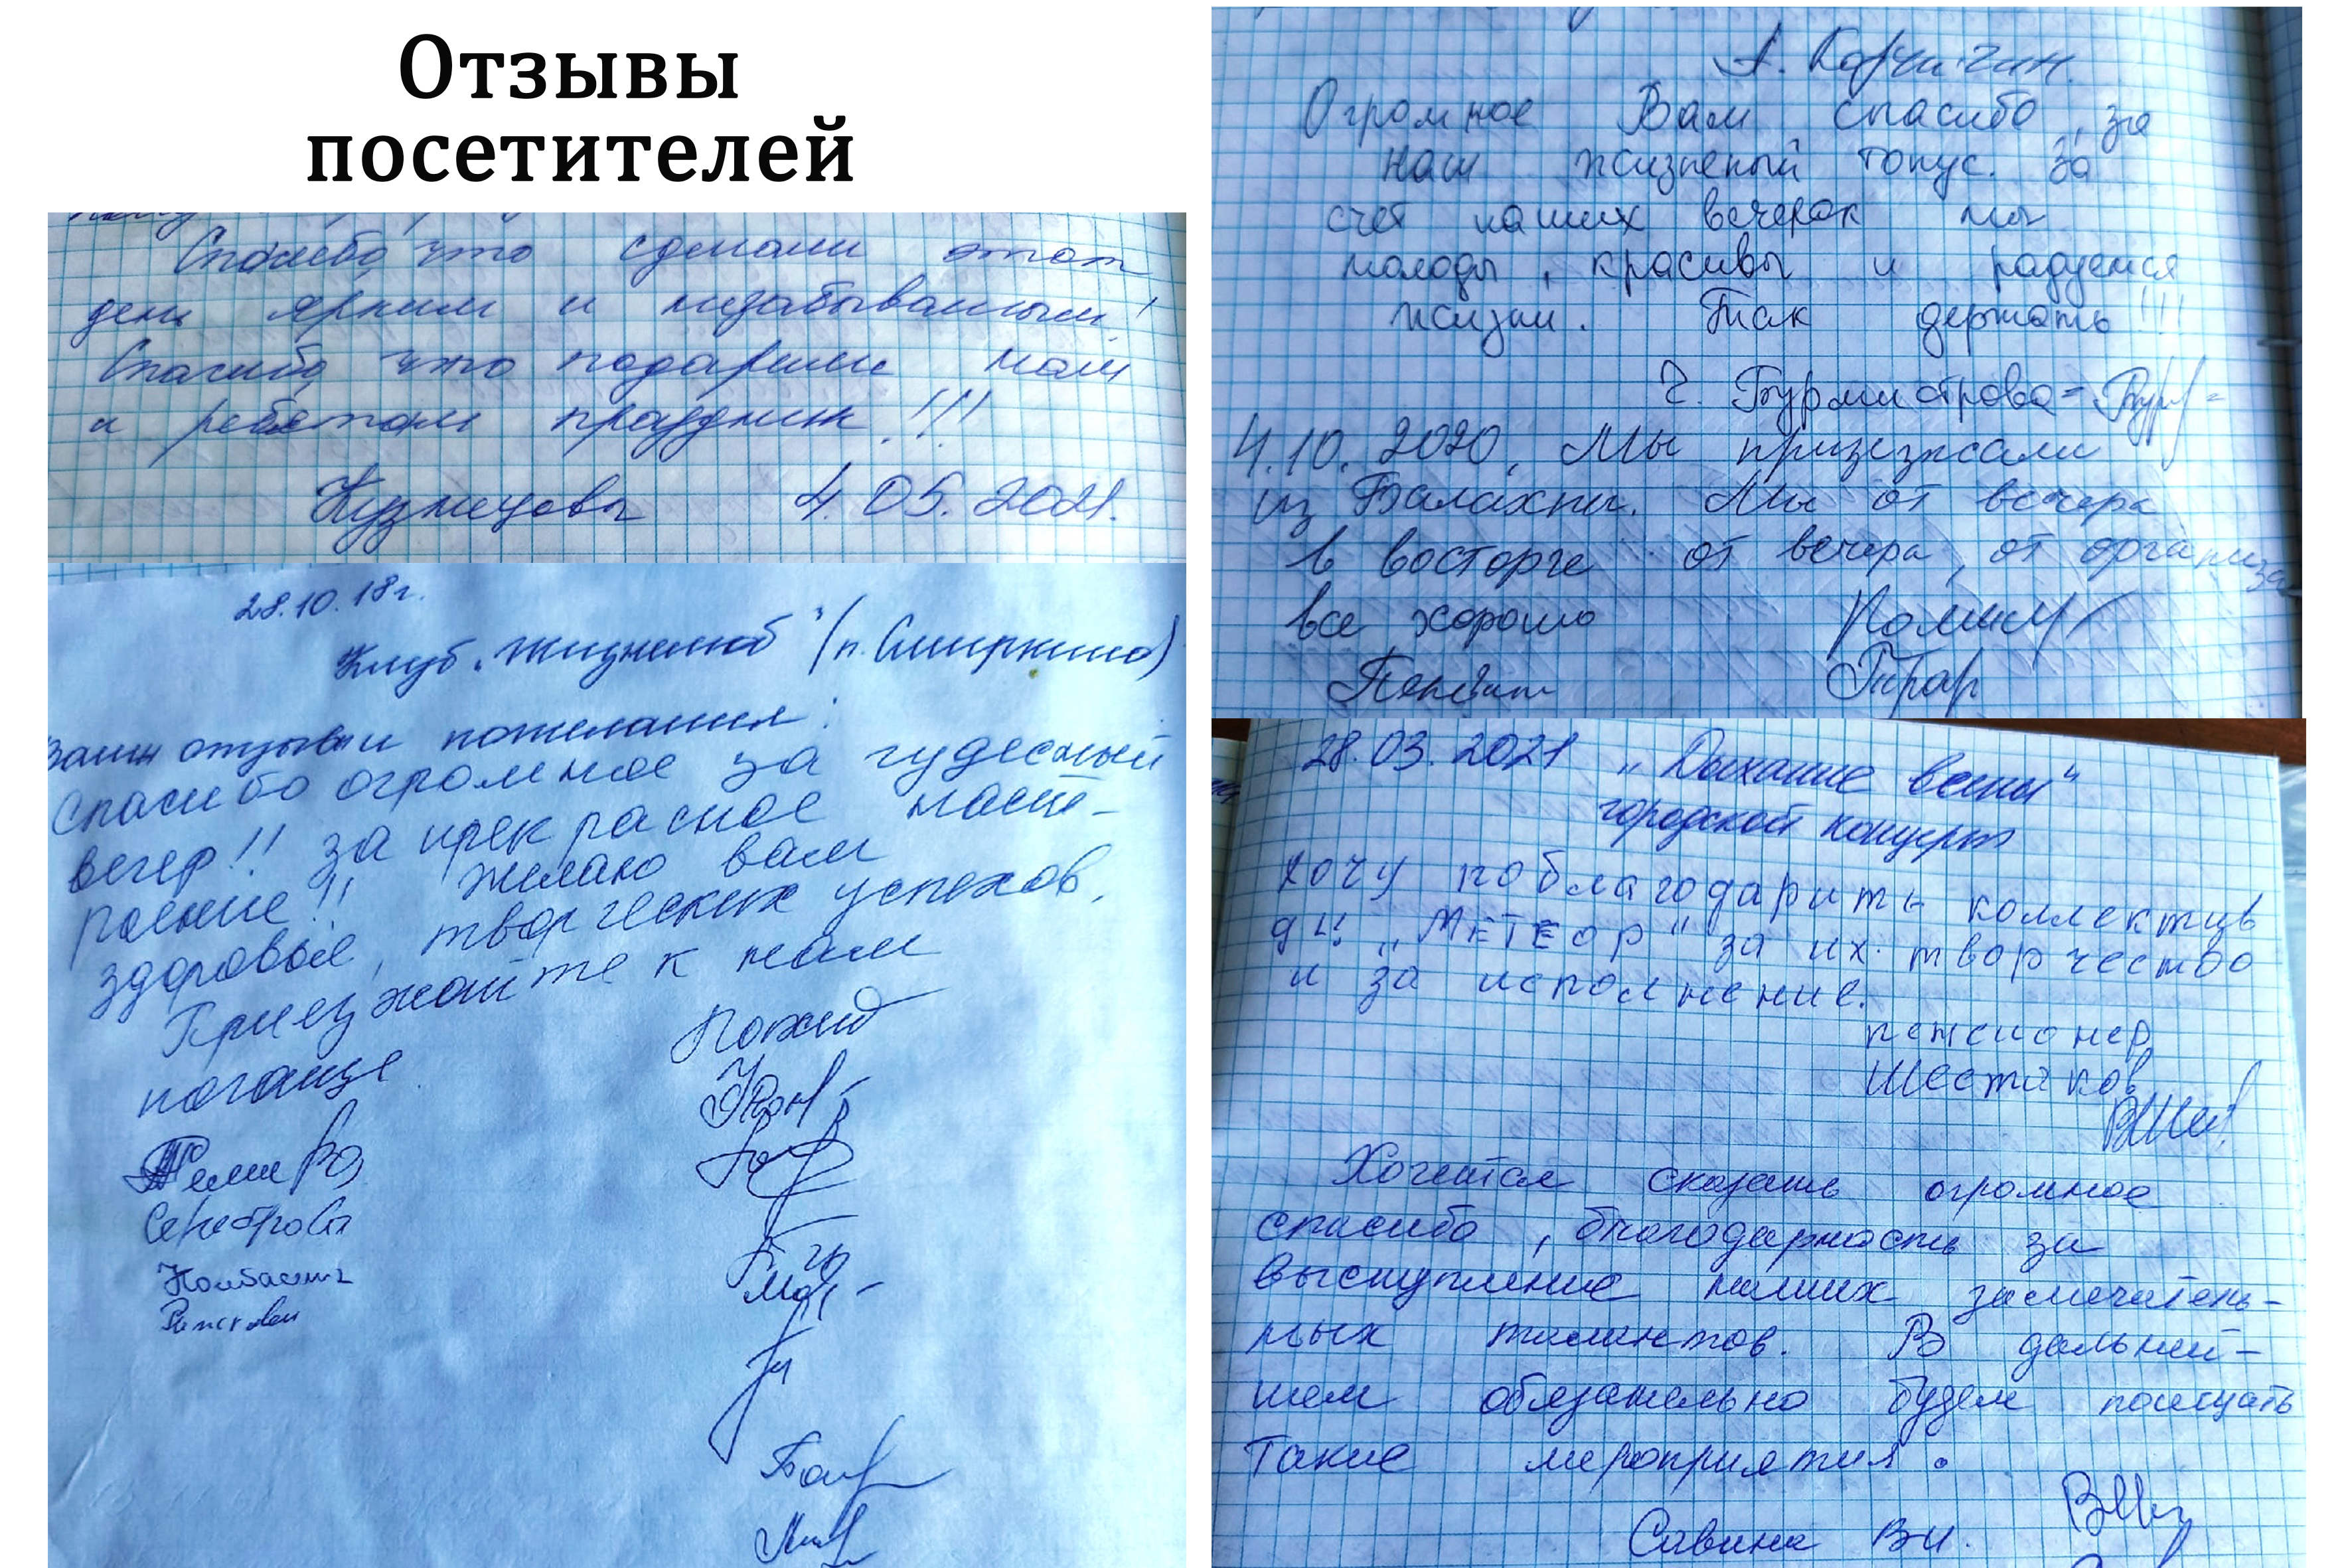 Отзывы
посетителей
Спасибо, что сделали этот
день ярким и незабываемым!
Спасибо, что подарили нам
и ребятам праздник!!!
Кузнецовы 4.05.2021.
28.10.18г.
Клуб "Жизнелюб" (п. Смиркино)
Ваши отзывы и пожелания:
Спасибо огромное за чудесный
вечер!! за прекрасное наст-
роение!! Желаю вам
здоровье, творческих успехов.
Приезжайте к нам
почаще
Сереброва
А. Корчагин.
Огромное Вам спасибо, за
наш жизненый тонус. За
счет наших вечерок мы
молоды, красивы и радуемся
жизни. Так держать!!!
Г. Бурмистрова
4.10.2020, Мы приезжали
из Балахны. Мы от вечера
в восторге от вечера, от организа
все хорошо
28.03.2021 "Дыхание весны"
городской концерт
Хочу поблагодарить коллектив
ДЦ "МЕТЕОР" за их творчество
и за исполнение.
пенсионер
Шестаков
Хочется сказать огромное
спасибо, благодарность за
выступление наших замечатель-
ных талантов. В дальней-
шем обязательно будем посещать
такие мероприятия.
Савина В.И.